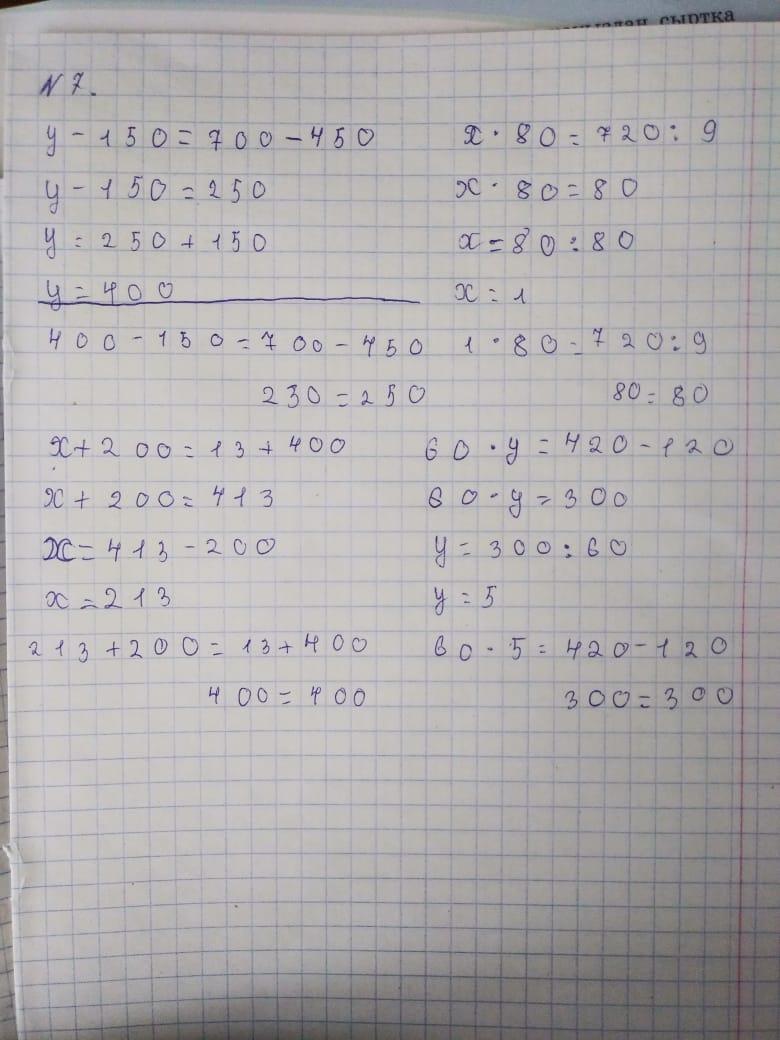 сыртка
N 7.
y - 150 = 700 - 450
y - 150 = 250
y = 250 + 150
y = 400
400 - 150 = 700 - 450
230 = 250
x + 200 = 13 + 400
x + 200 = 413
x = 413 - 200
x = 213
213 + 200 = 13 + 400
400 = 400
x · 80 = 720 : 9
x · 80 = 80
x = 80 : 80
x = 1
1 · 80 = 720 : 9
80 = 80
60 · y = 420 - 120
60 · y = 300
y = 300 : 60
y = 5
60 · 5 = 420 - 120
300 = 300